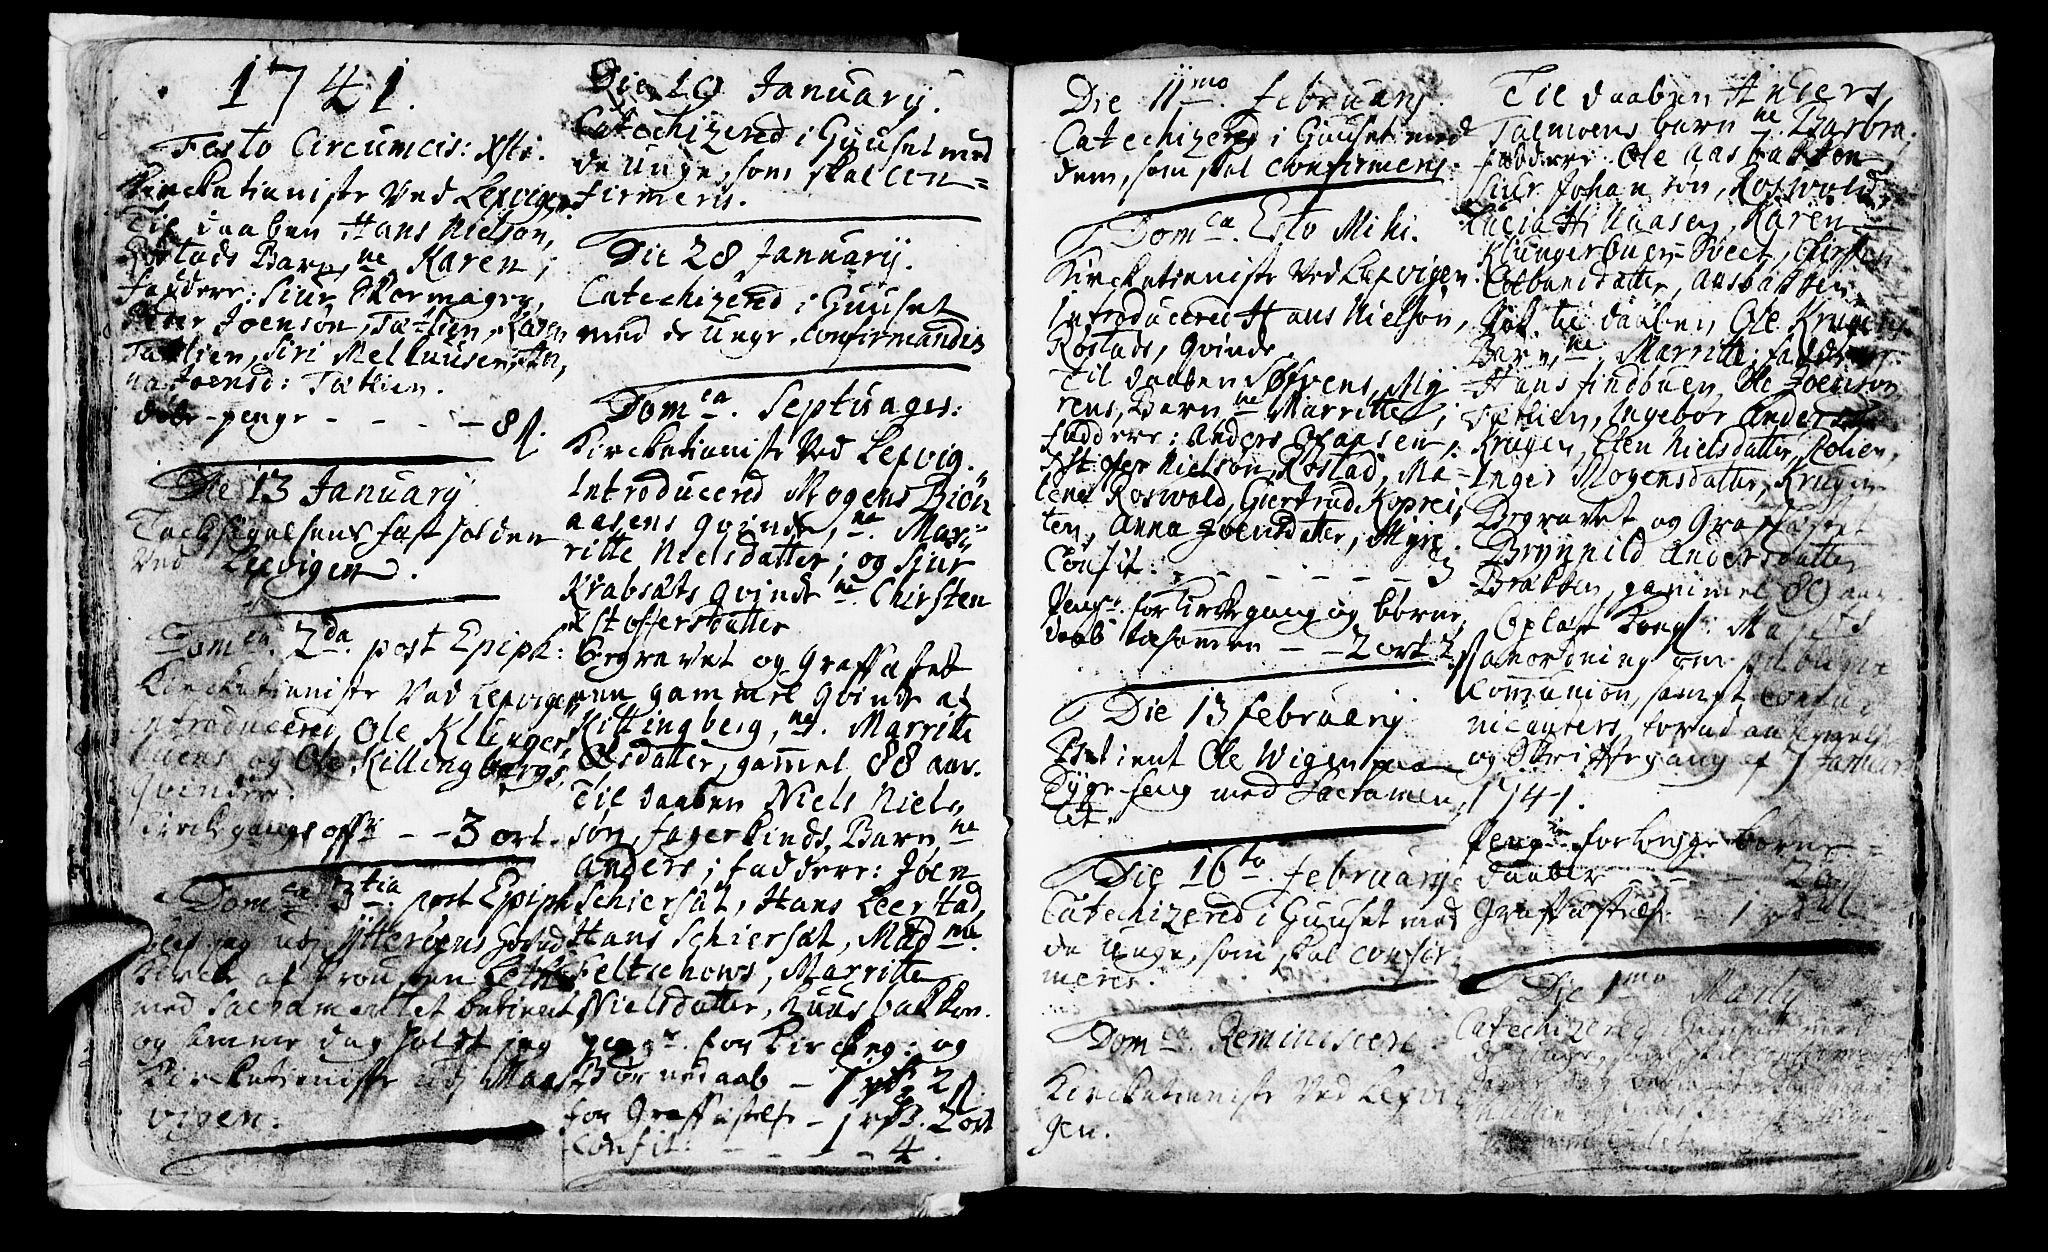 1741.
Festo Circumcis: Xsti.
Kircketieniste Ved Lexvigen.
Til daaben Hans Nielsøn,
Rostads Barn, ne Karen;
faddere: Siur Skormager,
Peder Joensøn, Tætlien, Karen
Tætlien, Siri Melhuusen, An,
na Joensd: Tætlien.
Dåbs-penge - - - - 8 s.
Die 13 January
Tacksigelsens fæst holden
Ved Lexvigen.
Domca. 2da. post Epiph:
Kircketieniste Ved Lexvigen
introducered Ole Klunger,
buens og Ole Killingbergs,
qvinder.
Kirckgangs offr - - 3 ort.
Domca 3tia. post Epiph
blef jeg udj Ytterøens Hoved
Kircke af Provsten
med Sacramentet betient,
og samme dag holdt jeg
Kircketieniste udj Maas,
vigen.
Die 19 January.
Catechizered i Huuset med
de Unge, som skal con=
firmeris.
Die 28 January.
Catechizerid i Huuset
med de Unge Confirmandis
Domca. Septuages:
Kircketieniste Ved Lexvig.
Introducered Mogens Biön
aasens qvinde, ne. Mar=
ritte Nielsdatter; og Siur
Krabsåts qvinde ne. Chirsten
Xstoffersdatter
Begravet og Graffæstet
een gammel qvinde af
Killingberg, ne. Marritte
Olsdatter, gamel 88 aar.
Til daaben Niels Niel,
søn, Fagerlinds, Barn, ne
Anders; faddere: Joen
Schiersåt, Hans Leerstad,
Hans Schiersåt, Mad me.
Feltschows, Marritte
Nielsdatter, Huusbakken.
peng. for Kirckeg: og
Børnedaab - 1 rx 2 s.
for Graffæstelse - 1 rx 3. 2 ort
Confit: - - - - 4.
Die 11mo. February.
Catechizered i Huuset med
dem, som skal confirmeris.
Domca. Esto Mihi.
Kircketieniste Ved Lexvigen.
Introducered Hans Nielsøn,
Rostads, qvinde.
Til daaben Søfrens, My=
rens, Barn ne Marritte;
faddere: Anders Olaasen,
Xstofer Nielsøn, Rostad, Ma=
lene Roswold, Giertrud Koprei,
ten, Anna Joensdatter, Myre.
Confit: - - - - - - 3
Penge for Kirckegang og børne,
daab tilsammen - - 2 ort 2 s
Die 13 February
Betient Ole Wigen paa
Syge-seng med Sacramen,
tet.
Die 16to. February
Catechizered i Huuset med
de Unge, som skal confir
meres.
Domca. Reminiscere.
Kircketieniste Ved Lexvi
gen.
Til daaben Anders,
Talmoens barn ne. Barbra.
faddere: Ole Aasbakken,
Siur Johansøn, Roswold,
Lucia Hillaasen, Karen
Klungerbuen-Sveet, Chirsten
Colbensdatter, Aasbakken.
Item til daaben, Ole Krugens
Barn, ne. Marritte; faddere:
Hans Findbuen, Ole Joensøn
Tætlien, Ingebor Andersdr.
Krugen, Elen Nielsdatter, Rolien,
Inger Mogensdatter, Krugen
Begravet og Graffæstet
Brynnild Andersdatter
Brækken, gammel 89 aar.
Oplæst Kongl: Majets
anordning om
Communion, samt commu
nicanters forud anteignelse
og Skriftegang af 7 Januar.
1741.
Peng. for tvenge børne=
daaber - - - 2 ort
Graffæstelse - 1 rx
Die 1mo Martij
Catechizered i Huuset med
de Unge, som skal confirmeris